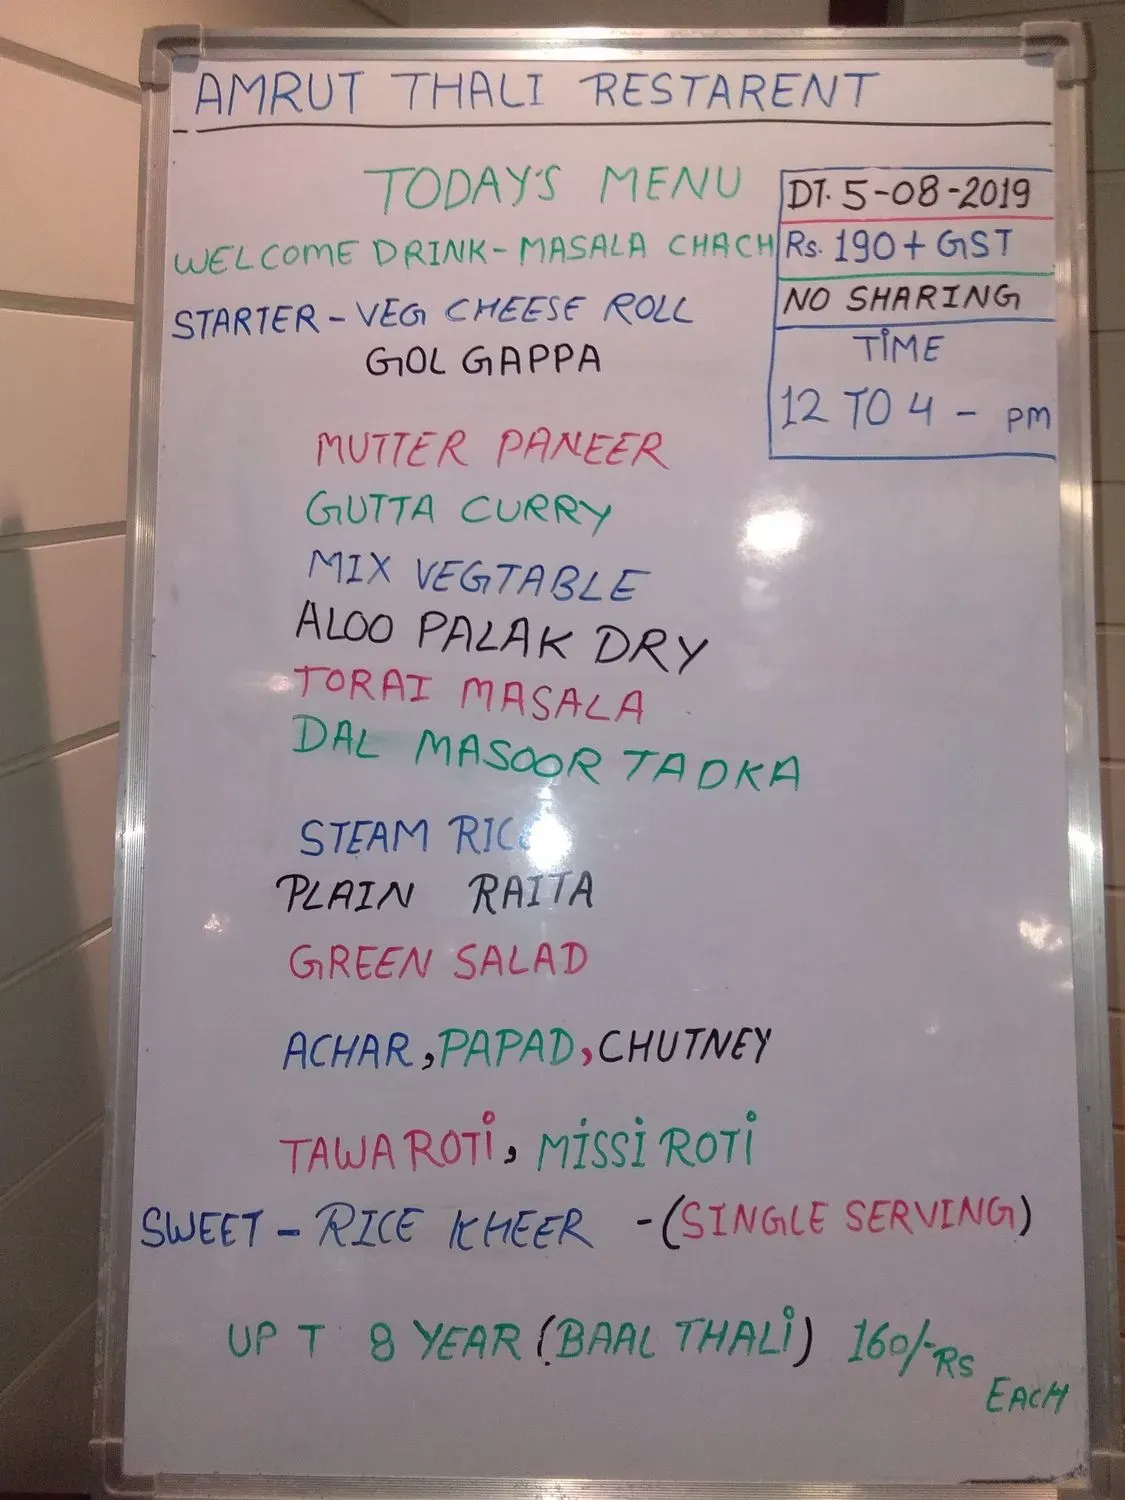 AMRUT THALI RESTARENT
TODAY'S MENU
DT. 5-08-2019
WELCOME DRINK - MASALA CHACH
Rs. 190 + GST
STARTER - VEG CHEESE ROLL
NO SHARING
GOL GAPPA
TIME
12 TO 4 - PM
MUTTER PANEER
GUTTA CURRY
MIX VEGTABLE
ALOO PALAK DRY
TORAI MASALA
DAL MASOOR TADKA
STEAM RICE
PLAIN RAITA
GREEN SALAD
ACHAR, PAPAD, CHUTNEY
TAWA ROTI, MISSI ROTI
SWEET - RICE KHEER - (SINGLE SERVING)
UP T 8 YEAR (BAAL THALI) 160/- Rs
EACH